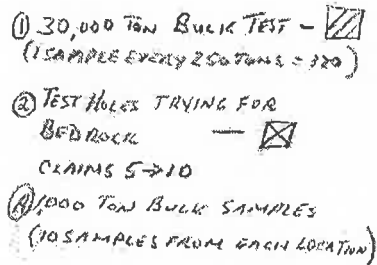 ① 30,000 TON BULK TEST -
(1 SAMPLE EVERY 250 TONS = 120)
② TEST HOLES TRYING FOR
BEDROCK —
CLAIMS 5→10
Ⓐ 1,000 TON BULK SAMPLES
(10 SAMPLES FROM EACH LOCATION)